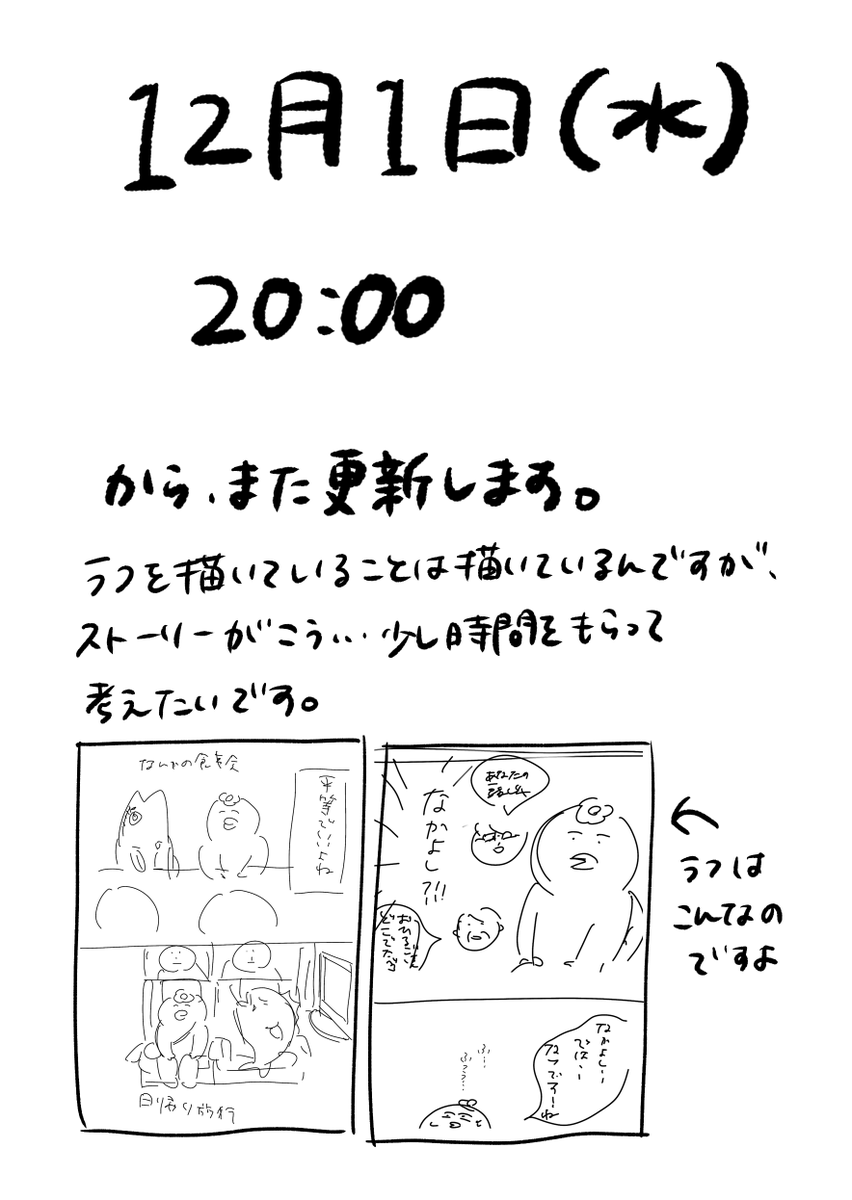 12月1日(水)
20:00
から、また更新します。
ラフを描いていることは描いているんですが、
ストーリーがこうい…少し時間をもらって
考えたいです。
なんかの食事会
平等でいいよね
日帰り旅行
あなたの
なかよし?!!
おひるごはん
どこでたべ
なかよし…
では…
ないですーね
ふ…
ふつう…
ラフは
こんなの
ですよ